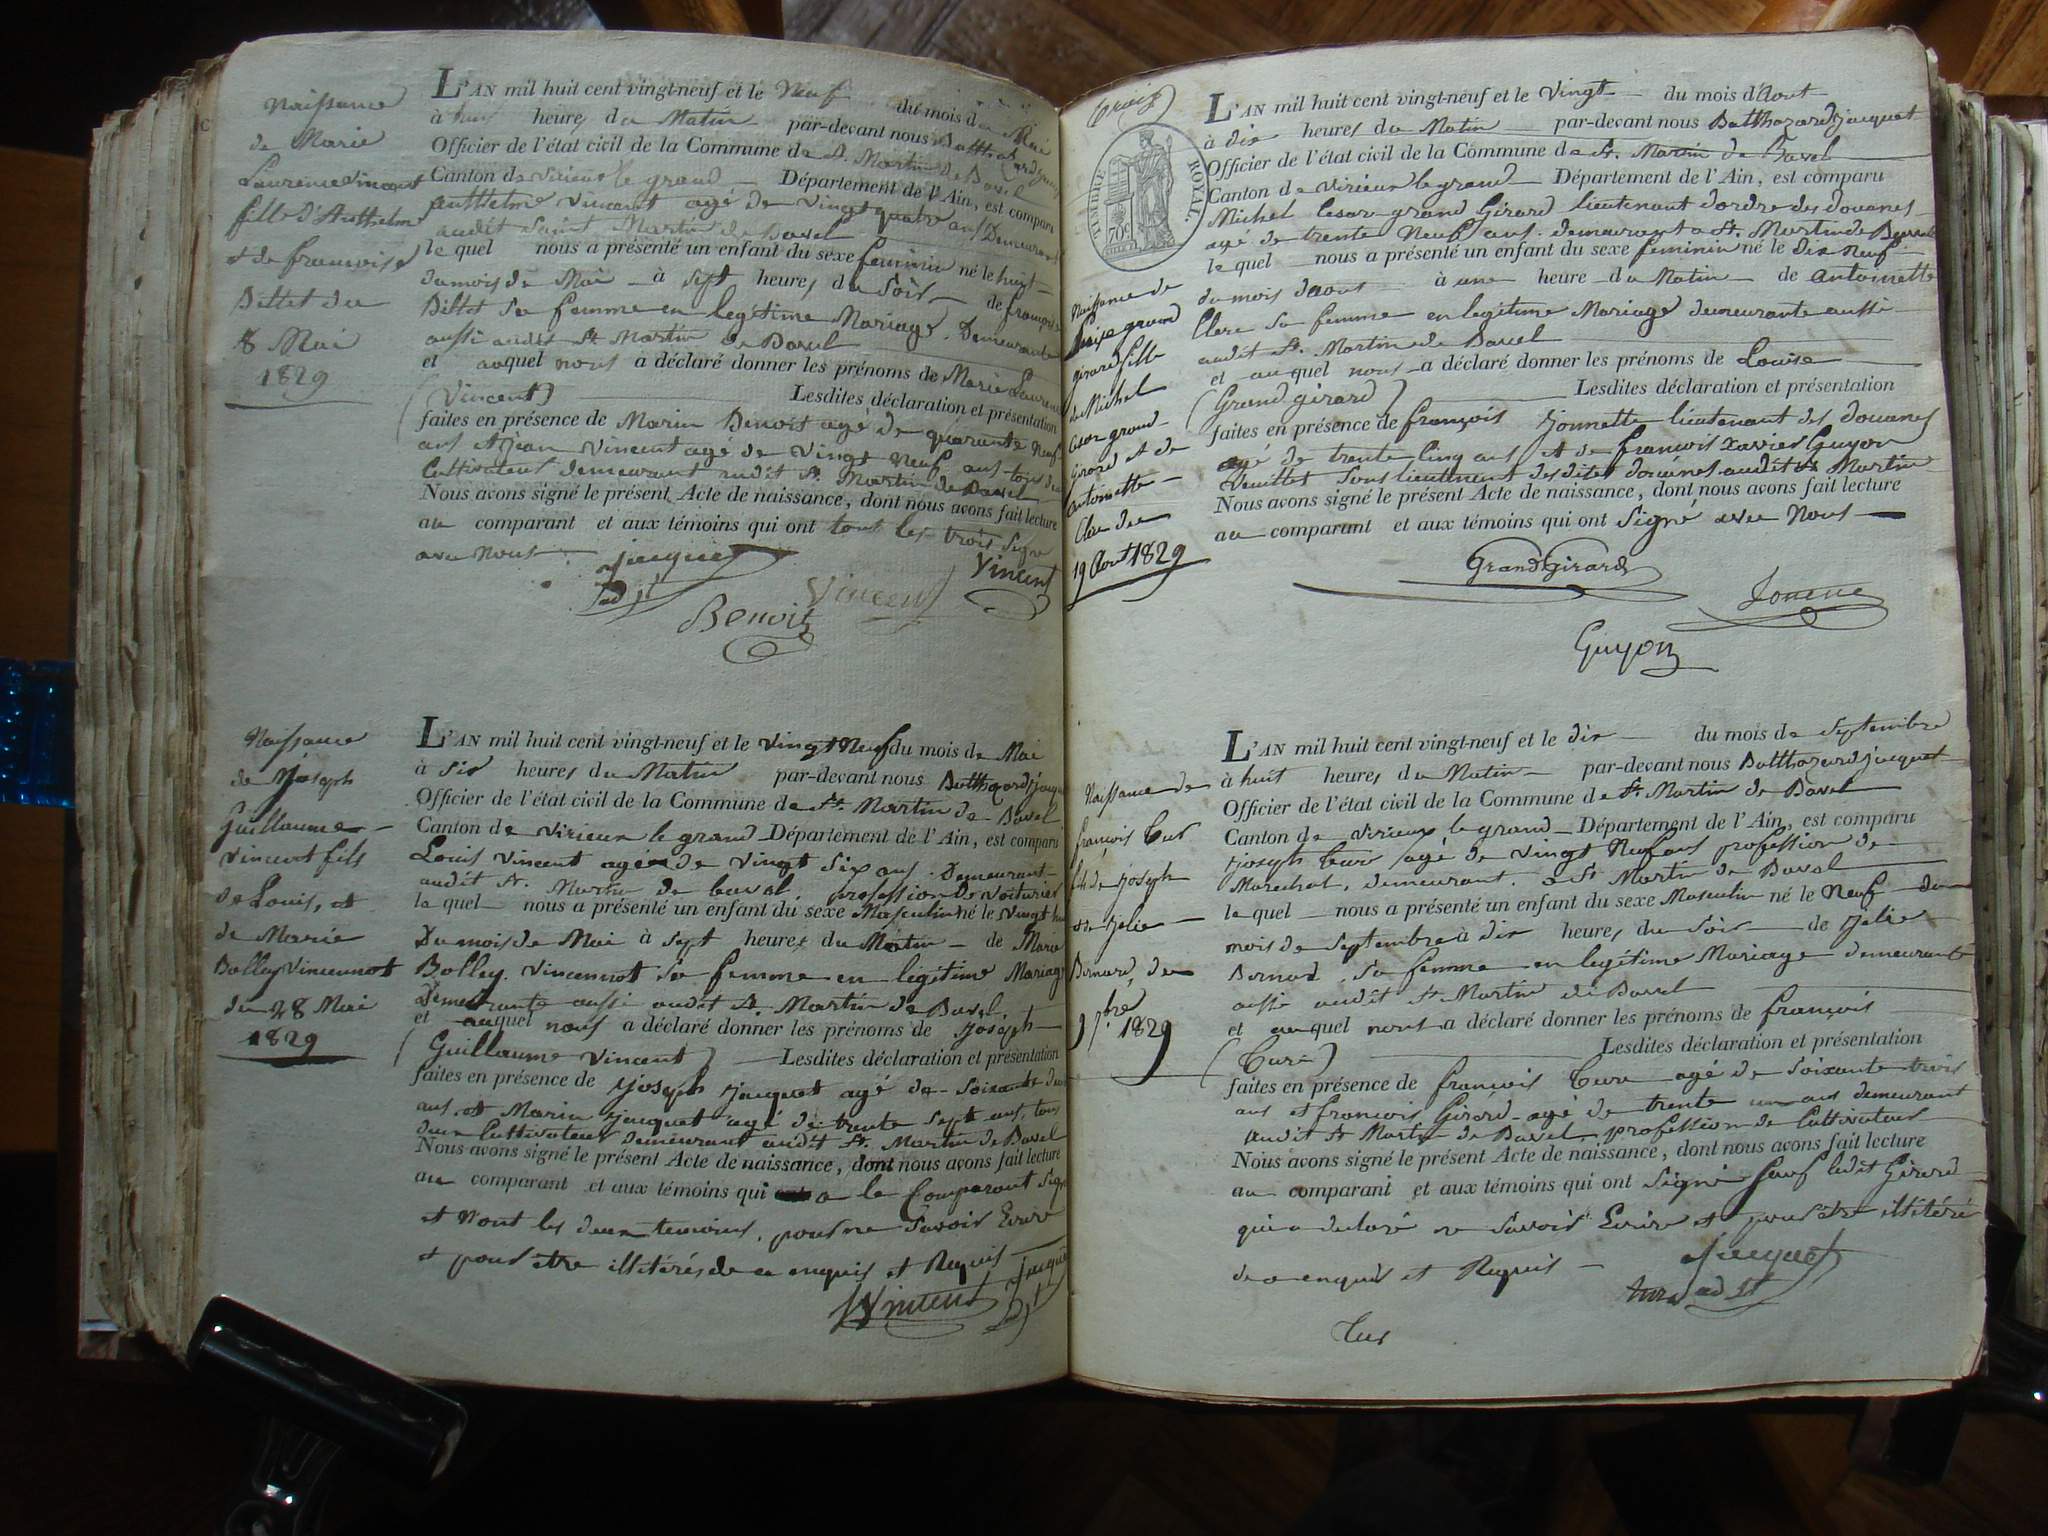 Naissance
de Marie
Laurence Vincent
fille d'Anthelme
et de françoise
Billet du
8 Mai
1829
L'AN mil huit cent vingt-neuf et le Neuf du mois de Mai
à huit heures du Matin par-devant nous Balthazard jacquet
Officier de l'état civil de la Commune de St. Martin De Bavel
Canton de virieux le grand Département de l'Ain, est comparu
anthelme vincent agé de vingt quatre ans Demeurant
audit Saint Martin de Bavel
le quel nous a présenté un enfant du sexe feminin né le huit
du mois de Mai à sept heures du Soir de françoise
Billet sa femme en legitime Mariage. Demeurante
aussi audit St. Martin de Bavel
et auquel nous a déclaré donner les prénoms de Marie Laurence
(Vincent) Lesdites déclaration et présentation
faites en présence de Marin Benoit agé de quarante Neuf
ans et jean Vincent agé de Vingt Neuf ans tous deux
Cultivateurs demeurant audit St. Martin de Bavel
Nous avons signé le présent Acte de naissance, dont nous avons fait lecture
au comparant et aux témoins qui ont tout les trois signé
avec Nous
jacquet
adjt
Vincent
Vincent
Benoit
Naissance
de Joseph
Guillaume
Vincent fils
de Louis, et
de Marie
Bolley Vincennot
du 28 Mai
1829
L'AN mil huit cent vingt-neuf et le Vingt Neuf du mois de Mai
à Six heures du Matin par-devant nous Balthazard jacquet
Officier de l'état civil de la Commune de St. Martin de Bavel
Canton de virieux le grand Département de l'Ain, est comparu
Louis Vincent agé de vingt six ans Demeurant
audit St. Martin de bavel, profession De voiturier
le quel nous a présenté un enfant du sexe Masculin né le Vingt huit
Du mois de Mai à sept heures du Matin de Marie
Bolley Vincennot sa femme en legitime Mariage
Demeurante aussi audit St. Martin de Bavel,
et auquel nous a déclaré donner les prénoms de Joseph
(Guillaume Vincent) Lesdites déclaration et présentation
faites en présence de Joseph Jacquet agé de Soixante deux
ans et Marin jacquet agé de trente sept ans, tous
deux Cultivateurs demeurant audit St. Martin de Bavel
Nous avons signé le présent Acte de naissance, dont nous avons fait lecture
au comparant et aux témoins qui a le Comparant Signé
et Nont les deux temoins, pour ne Savoir Ecrire
et pour etre illitérés de ce enquis et Requis
Vincent
Jacquet
TIMBRE ROYAL.
70c
Naissance de
Louise grand
girard fille
de Michel
Cesar grand
Girard et de
antoinette
Clere du
19 Aout 1829
L'AN mil huit cent vingt-neuf et le Vingt du mois d'Aout
à dix heures du Matin par-devant nous Balthazard jacquet
Officier de l'état civil de la Commune de St. Martin de Bavel
Canton de virieux le grand Département de l'Ain, est comparu
Michel Cesar grand Girard lieutenant d'ordre des douanes
agé de trente Neuf ans demeurant a St. Martin de Bavel
le quel nous a présenté un enfant du sexe feminin né le dix Neuf
du mois daout à une heure du Matin de Antoinette
Clere sa femme en legitime Mariage demeurante aussi
audit St. Martin de Bavel
et auquel nous a déclaré donner les prénoms de Louise
(Grand girard) Lesdites déclaration et présentation
faites en présence de françois Jonnette lieutenant des douanes
agé de trente Cinq ans et de francois Xavier Guyon
Sous lieutenant desdites douanes audit St Martin
Nous avons signé le présent Acte de naissance, dont nous avons fait lecture
au comparant et aux témoins qui ont Signé avec Nous
Grand Girard
Guyon
Naissance de
françois Cur
fils de Joseph
et de Jelie
Bernard, du
9 7bre
1829
L'AN mil huit cent vingt-neuf et le dix du mois de Septembre
à huit heures du Matin par-devant nous Balthazard jacquet
Officier de l'état civil de la Commune de St. Martin de Bavel
Canton de virieux le grand Département de l'Ain, est comparu
Joseph Cure agé de vingt Neuf ans profession de
Marechal, demeurant a St Martin de Bavel
le quel nous a présenté un enfant du sexe Masculin né le Neuf du
mois de Septembre à dix heures du Soir de Jelie
Bernard sa femme en legitime Mariage demeurante
aussi audit St Martin de Bavel
et auquel nous a déclaré donner les prénoms de françois
(Cure) Lesdites déclaration et présentation
faites en présence de françois Cure agé de Soixante trois
ans et françois Girard agé de trente un ans demeurant
audit St Martin de Bavel profession de Cultivateur
Nous avons signé le présent Acte de naissance, dont nous avons fait lecture
au comparant et aux témoins qui ont Signé Sauf ledit Girard
qui a declaré ne Savoir Ecrire et pour etre illitéré
de ce enquis et Requis
Jacquet
adjt
Cur